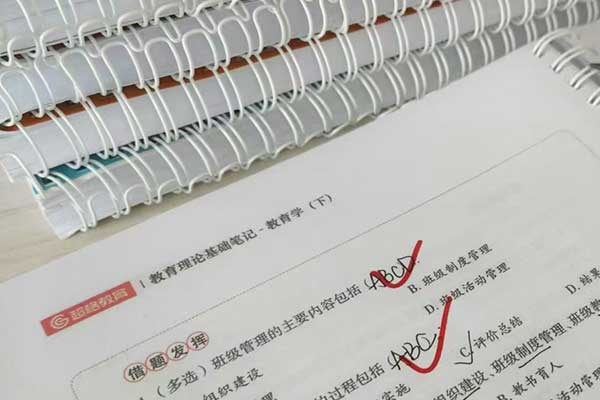 超格教育 | 教育理论基础笔记-教育学(下)
借题发挥
(多选)班级管理的主要内容包括(ABCD
组织建设
B.班级制度管理
D.班级活动管理
的过程包括(ABC
实施
C.评价总结
D.结果
组织建设、班级制度管理、班级教
B.教书育人